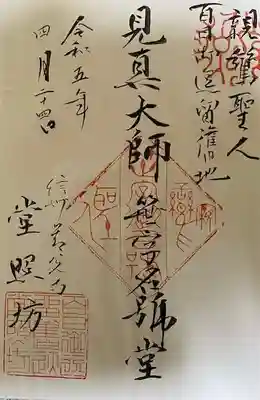 親鸞聖人
百日御逗留舊地
見真大師 笹字名號堂
令和五年
四月二十四日
信州善光寺
堂照坊